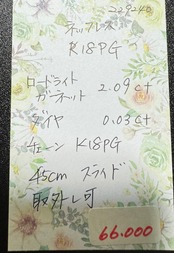 229240
ネックレス
K18PG
ロードライト
ガーネット 2.09ct
ダイヤ 0.03ct
チェーン K18PG
45cm スライド
取外し可
66.000